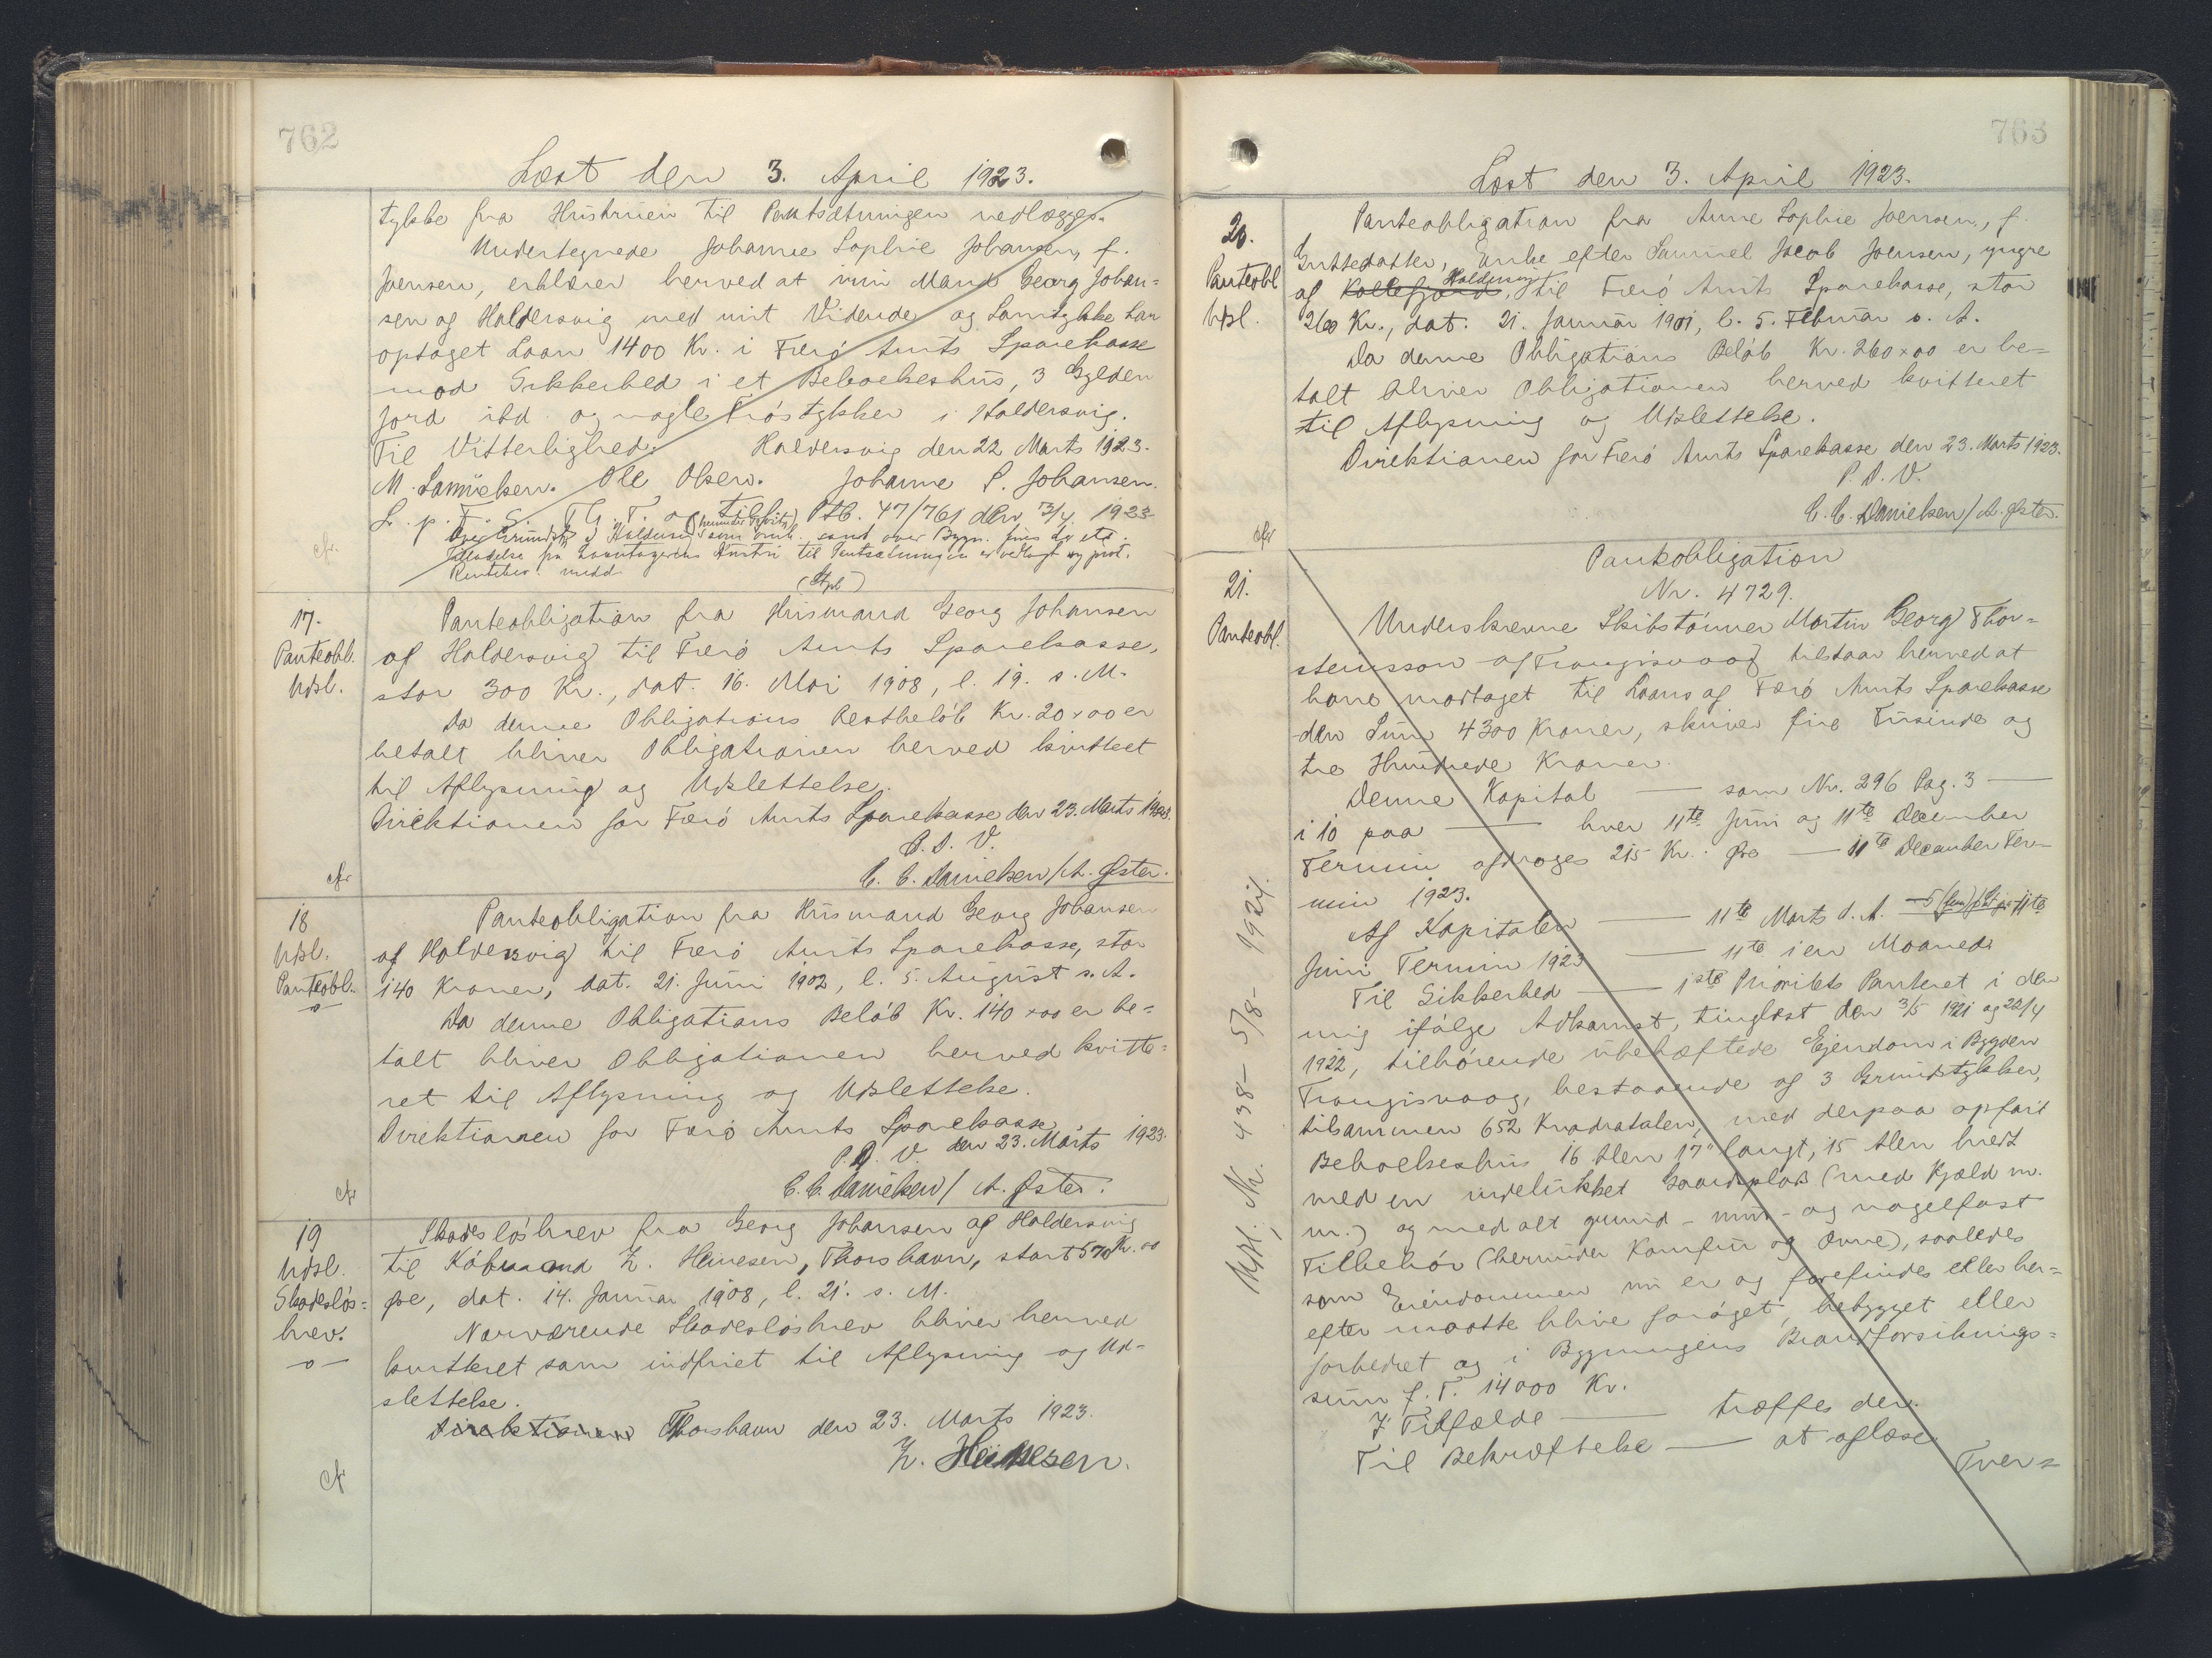 762
Læst den 3. April 1923.
tykke fra Hustruen til Pantsætningen vedlægges.
Undertegnede Johanne Sophie Johansen, f.
Joensen, erklærer herved at min Mand Georg Johan=
sen af Haldersvig med mit Vidende og Samtykke har
optaget Laan 1400 Kr. i Færö Amts Sparekasse
mod Sikkerhed i et Beboelseshus, 3 Gylden
Jord ibd. og nogle Tröstykker i Haldersvig.
Til Vitterlighed: Haldersvig den 22 Marts 1923.
M. Samuelsen. Ole Olsen. Johanne S. Johansen.
L. p. F. S. T. G. T. og Ptb. 47/761 den 3/4 1923
(Stpl)
17.
Panteobl.
Udsl.
Panteobligation fra Husmand Georg Johansen
af Haldersvig til Færö Amts Sparekasse,
stor 300 Kr., dat. 16. Mai 1908, l. 19. s. M.
Da denne Obligations Restbelöb Kr. 20×00 er
betalt bliver Obligationen herved kvitteret
til Aflysning og Udslettelse.
Direktionen for Færö Amts Sparekasse den 23. Marts 1923.
P. D. V.
C. C. Danielsen/A. Øster.
cfr
18
Udsl.
Panteobl.
-o-
Panteobligation fra Husmand Georg Johansen
af Haldersvig til Færö Amts Sparekasse, stor
140 Kroner, dat. 21. Juni 1902, l. 5. August s. A.
Da denne Obligations Belöb Kr. 140×00 er be=
talt bliver Obligationen herved kvitte=
ret til Aflysning og Udslettelse.
Direktionen for Færö Amts Sparekasse
P. D. V. den 23. Marts 1923.
C. C. Danielsen/ A. Øster.
cfr
19
Udsl.
Skadeslös=
brev.
-o-
Skadeslösbrev fra Georg Johansen af Haldersvig
til Köbmand Z. Heinesen, Thorshavn, stort 570 Kr. 00
Øre, dat. 14. Januar 1908, l. 21. s. M.
Nærværende Skadeslösbrev bliver herved
kvitteret som indfriet til Aflysning og Ud-
slettelse.
Direktionen Thorshavn den 23. Marts 1923.
Z. Heinesen.
cfr
763
Læst den 3. April 1923.
20.
Panteobl
Udsl.
Panteobligation fra Anne Sophie Joensen, f.
Guttesdatter, Enke efter Samuel Jacob Joensen, yngre
af Kollefjord, Haldersvig til Færö Amts Sparekasse, stor
260 Kr., dat. 21. Januar 1901, l. 5. Februar s. A.
Da denne Obligations Belöb Kr. 260×00 er be=
talt bliver Obligationen herved kvitteret
til Aflysning og Udslettelse.
Direktionen for Færö Amts Sparekasse den 23. Marts 1923.
P. D. V.
C. C. Danielsen/A. Øster.
cfr
21.
Panteobl.
Panteobligation
Nr. 4729.
Underskrevne Skibstömrer Martin Georg Thor=
steinsson af Trangisvaag tilstaar herved at
have modtaget til Laans af Færö Amts Sparekasse
den Sum 4300 Kroner, skriver fire Tusinde og
tre Hundrede Kroner.
Denne Kapital — som Nr. 296 Pag. 3 —
i 10 paa — hver 11te Juni og 11te December
Termin afdrages 215 Kr. Øre — 11te December Ter-
min 1923.
Af Kapitalen — 11te Marts d. A. — 5 (fem) pCt p. a. 11te
Juni Termin 1923 — 11te i en Maaned.
Til Sikkerhed — 1ste Prioritets Panteret i den
mig ifölge Adkomst, tinglæst den 3/5 1921 og 22/4
1922, tilhörende übehæftede Ejendom i Bygden
Trangisvaag, bestaaende af 3 Grundstykker,
tilsammen 652 Kvadratalen, med derpaa opfört
Beboelseshus 16 Alen 17" langt, 15 Alen bredt
med en indelukket Gaardsplads (med Kjæld m.
m.) og med alt grund- mur- og nagelfast
Tilbehör (herunder Komfur og Ovne), saaledes
som Ejendommen nu er og forefindes eller her=
efter maatte blive foröget, bebygget eller
forbedret og i Bygningens Brandforsikrings=
sum f. T. 14000 Kr.
I Tilfælde — træffes der.
Til Bekræftelse — at aflæse
Tver=
Udsl. Nr. 438- 5/8- 1924.